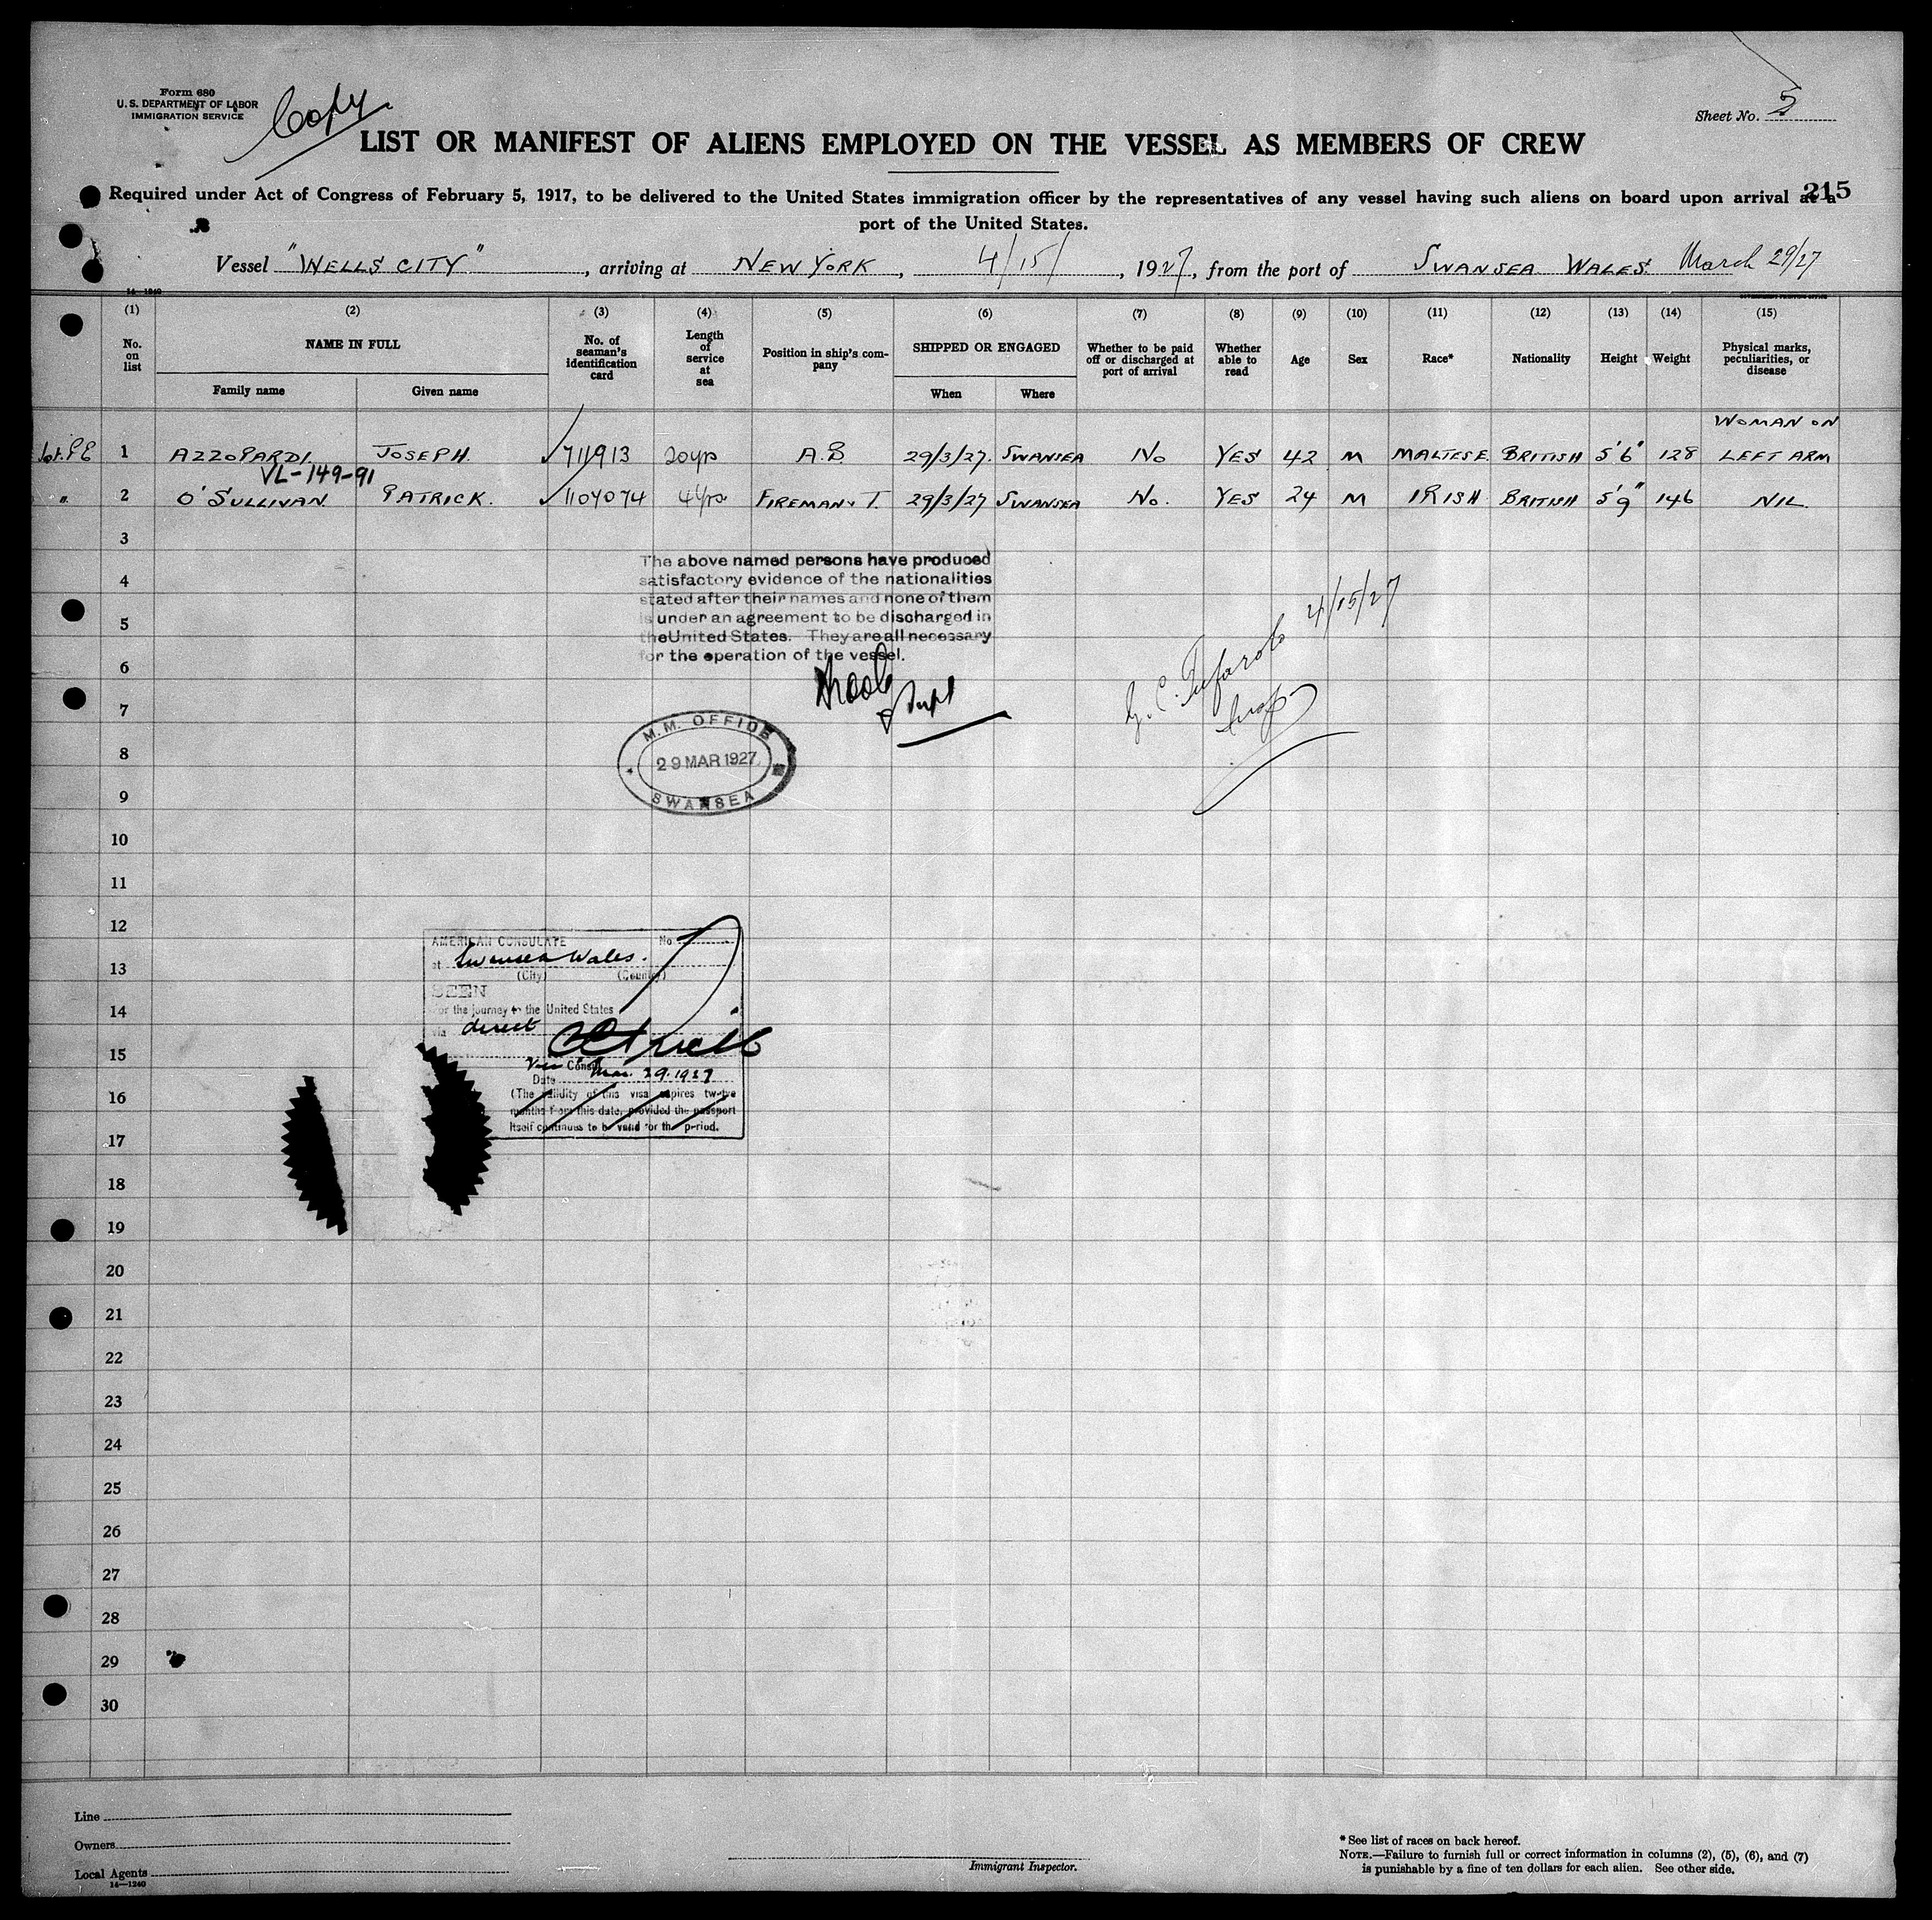 Form 680
U. S. DEPARTMENT OF LABOR
IMMIGRATION SERVICE
Copy
Sheet No. 5
LIST OR MANIFEST OF ALIENS EMPLOYED ON THE VESSEL AS MEMBERS OF CREW
Required under Act of Congress of February 5, 1917, to be delivered to the United States immigration officer by the representatives of any vessel having such aliens on board upon arrival at a
215
port of the United States.
Vessel "WELLS CITY", arriving at NEW YORK, 4/15/, 1927, from the port of SWANSEA WALES. March 29/27
14—1240
GOVERNMENT PRINTING OFFICE
(1) (2) (3) (4) (5) (6) (7) (8) (9) (10) (11) (12) (13) (14) (15)
No. on list
NAME IN FULL
Family name
Given name
No. of seaman's identification card
Length of service at sea
Position in ship's com-pany
SHIPPED OR ENGAGED
When
Where
Whether to be paid off or discharged at port of arrival
Whether able to read
Age
Sex
Race*
Nationality
Height
Weight
Physical marks, peculiarities, or disease
WOMAN ON
1 AZZOPARDI. JOSEPH. 711913 20yrs A.B. 29/3/27. SWANSEA No YES 42 M MALTESE. BRITISH 5'6" 128 LEFT ARM
VL-149-91
" 2 O'SULLIVAN. PATRICK. 1104074 4yrs FIREMAN & T. 29/3/27 SWANSEA No. YES 24 M IRISH BRITISH 5'9" 146 NIL.
3
The above named persons have produced
4
satisfactory evidence of the nationalities
stated after their names and none of them
5
is under an agreement to be discharged in
the United States. They are all necessary
6
for the operation of the vessel.
Supt
4/15/27
Insp
7
8
M.M. OFFICE
29 MAR 1927
SWANSEA
9
10
11
12
AMERICAN CONSULATE No.
at Swansea Wales.
13
(City) (Country)
SEEN
14
For the journey to the United States
via direct
15
Vice Consul
Date Mar. 29. 1927
16
(The validity of this visa expires twelve
months from this date, provided the passport
17
itself continues to be valid for the period.
18
19
20
21
22
23
24
25
26
27
28
29
30
Line
Owners
Local Agents
14—1240
Immigrant Inspector.
* See list of races on back hereof.
NOTE.—Failure to furnish full or correct information in columns (2), (5), (6), and (7)
is punishable by a fine of ten dollars for each alien. See other side.